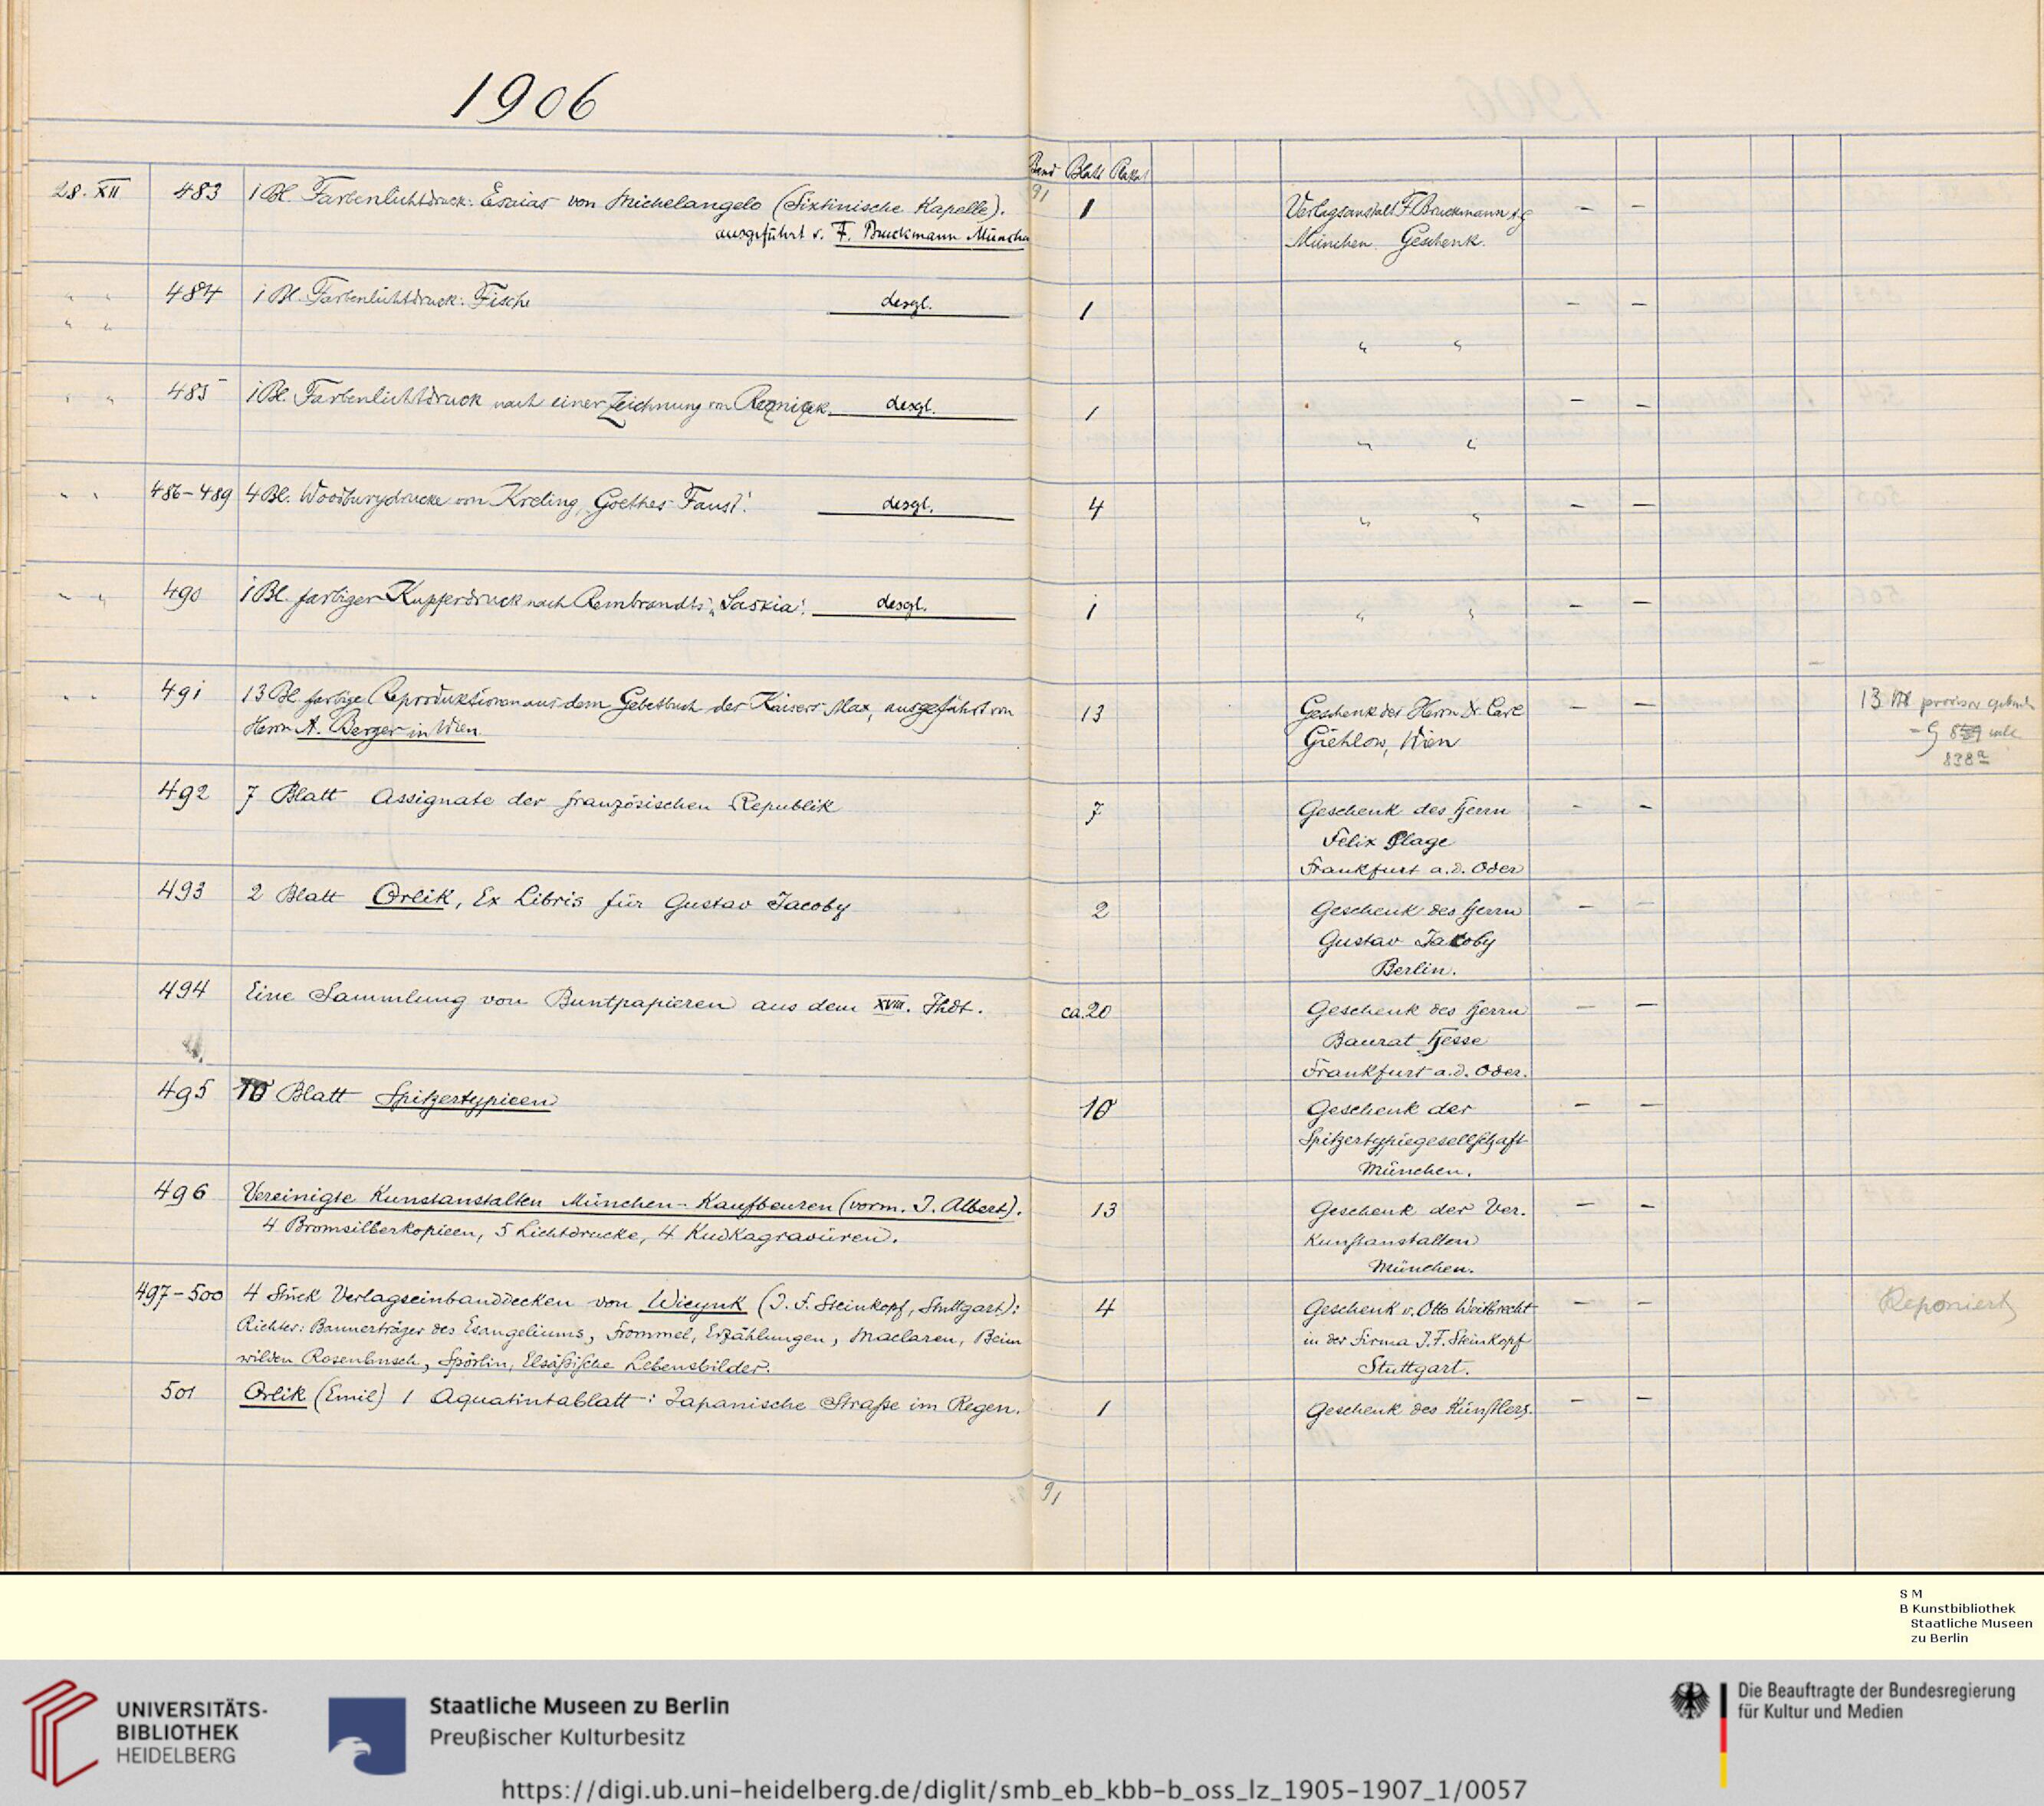 1906
Band Blatt Plakat
28. XII 483 1 Bl. Farbenlichtdruck: Esaias von Michelangelo (Sixtinische Kapelle). 91 1 Verlagsanstalt F. Bruckmann A.G. — —
ausgeführt v. F. Bruckmann München München. Geschenk.
" " 484 1 Bl. Farbenlichtdruck: Fische desgl. 1 — —
" " " "
" " 485 1 Bl. Farbenlichtdruck nach einer Zeichnung von Reznicek. desgl. 1 — —
" "
" " 486–489 4 Bl. Woodburydrucke von Kreling, Goethes Faust'. desgl. 4 " " — —
" " 490 1 Bl. farbiger Kupferdruck nach Rembrandts „Saskia'. desgl. 1 " " — —
" " 491 13 Bl. farbige Reproduktionen aus dem Gebetbuch des Kaisers Max, ausgeführt von 13 Geschenk des Herrn Dr. Carl — — 13 Bl
Herrn A. Berger in Wien. Giehlow, Wien
838a
492 7 Blatt Assignate der französischen Republik 7 Geschenk des Herrn — —
Felix Plage
Frankfurt a.d. Oder
493 2 Blatt Orlik, Ex Libris für Gustav Jacoby 2 Geschenk des Herrn — —
Gustav Jacoby
Berlin.
494 Eine Sammlung von Buntpapieren aus dem XVIII. Jhdt. ca. 20 Geschenk des Herrn — —
Baurat Hesse
Frankfurt a.d. Oder.
495 10 Blatt Spitzertypieen 10 Geschenk der — —
Spitzertypiegesellschaft
München.
496 Vereinigte Kunstanstalten München-Kaufbeuren (vorm. J. Albert). 13 Geschenk der Ver. — —
4 Bromsilberkopieen, 5 Lichtdrucke, 4 Kudkagravüren. Kunstanstalten
München.
497–500 4 Stück Verlagseinbanddecken von Wieynk (J. F. Steinkopf, Stuttgart): 4 Geschenk v. Otto Weitbrecht — — Reponiert
Richter: Bannerträger des Evangeliums, Frommel, Erzählungen, Maclaren, Beim in der Firma J. F. Steinkopf
wilden Rosenbusch, Spörlin, Elsäßische Lebensbilder. Stuttgart.
501 Orlik (Emil) 1 Aquatintablatt: Japanische Straße im Regen. 1 Geschenk des Künstlers. — —
91
S M
B Kunstbibliothek
Staatliche Museen
zu Berlin
UNIVERSITÄTS-
BIBLIOTHEK
HEIDELBERG
Staatliche Museen zu Berlin
Preußischer Kulturbesitz
Die Beauftragte der Bundesregierung
für Kultur und Medien
https://digi.ub.uni-heidelberg.de/diglit/smb_eb_kbb-b_oss_lz_1905-1907_1/0057